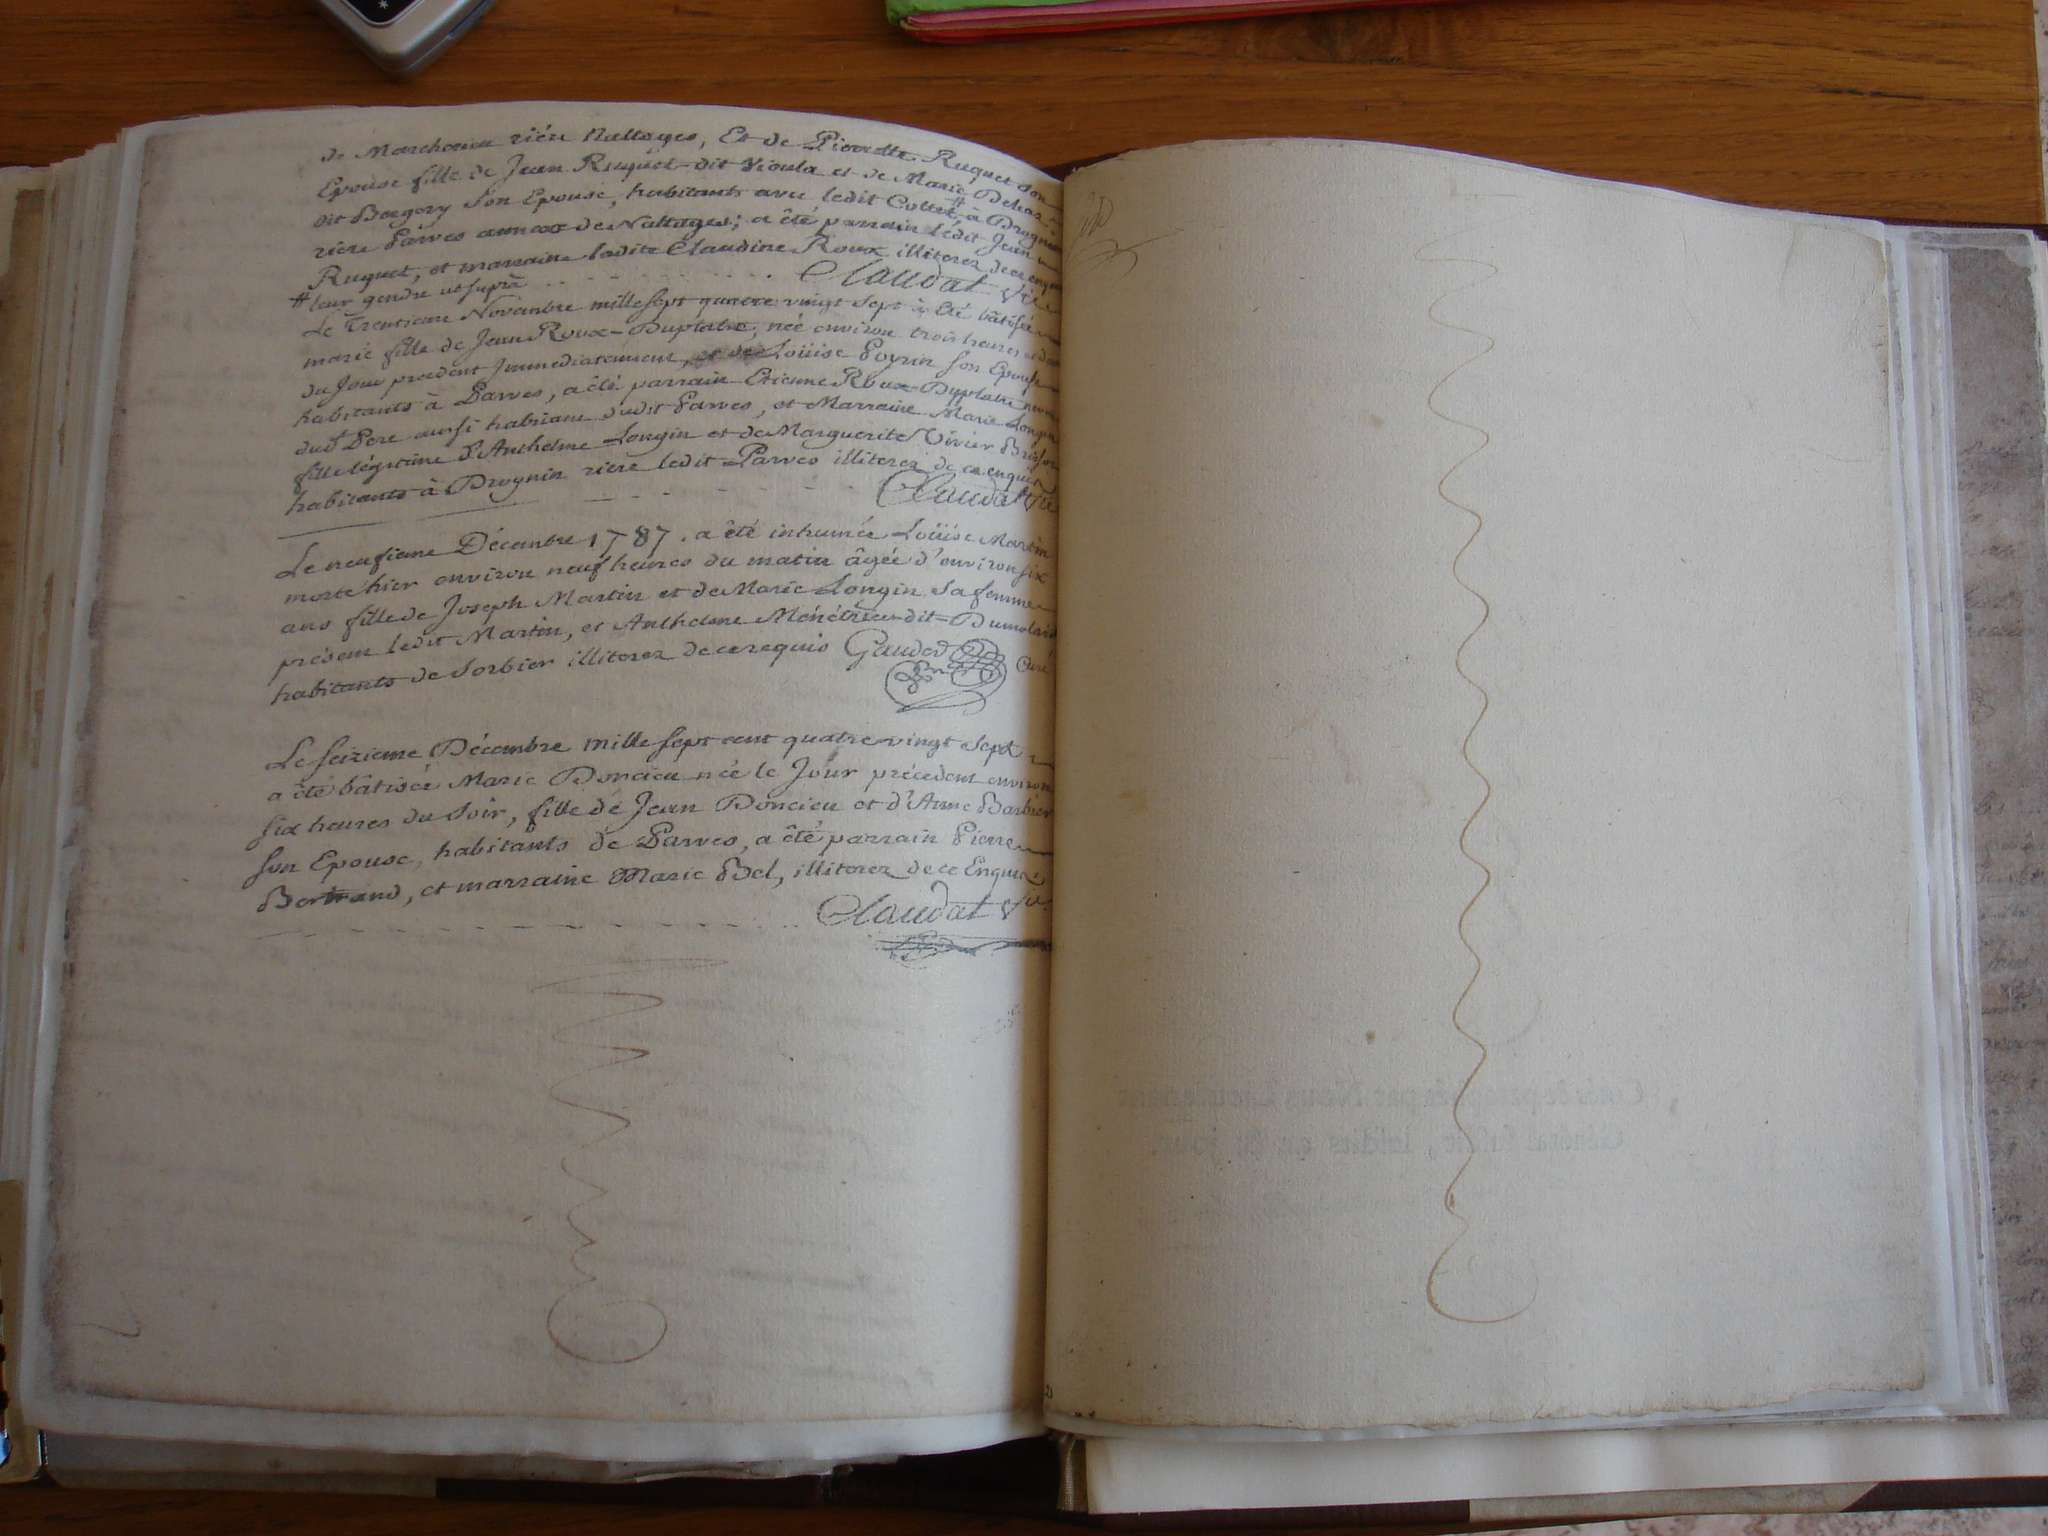 de Marchamu rière Nattages, Et de Pierrette Ruquet son
Epouse fille de Jean Ruquet dit Vioula et de Marie
dit Bergery son Epouse, habitants avec ledit Collet # à Prognin
rière Parves annexe de Nattages; a êté parrain ledit Jean
Ruquet, et marraine ladite Claudine Roux illiterez de ce enquis
# leur gendre ut suprà Claudat Vic.
Le Trentieme Novembre mille sept quatre vingt sept à été bâtisée
marie fille de Jean Roux-Duplatre, née environ trois heures
du Jour precedent Immediatement, et de Loüise Goyrin son Epouse
habitants à Parves, a êté parrain Etienne Roux-Duplatre
dud.t Pere aussi habitant dudit Parves, et Marraine Marie Longin
fille légitime d'Anthelme Longin et de Marguerite Vivier Brisson
habitants à Prognin rière ledit Parves illiterez de ce enquis
Claudat Vic
Le neufieme Décembre 1787. a êté inhumée Loüise Martin
morte hier environ neuf heures du matin âgée d'environ six
ans fille de Joseph Martin et de Marie Longin sa femme
présent ledit Martin, et Anthelme Ménétrier dit=Dumolard
habitants de Sorbier illiterez de ce requis Gaudet Curé
Le seizieme Décembre mille sept cent quatre vingt sept
a êté bâtisée Marie Doncieu née le Jour précédent environ
six heures du Soir, fille de Jean Doncieu et d'Anne Barbier
son Epouse, habitants de Parves, a êté parrain Pierre
Bertrand, et marraine Marie Bel, illiterez de ce Enquis
Claudat Vic.